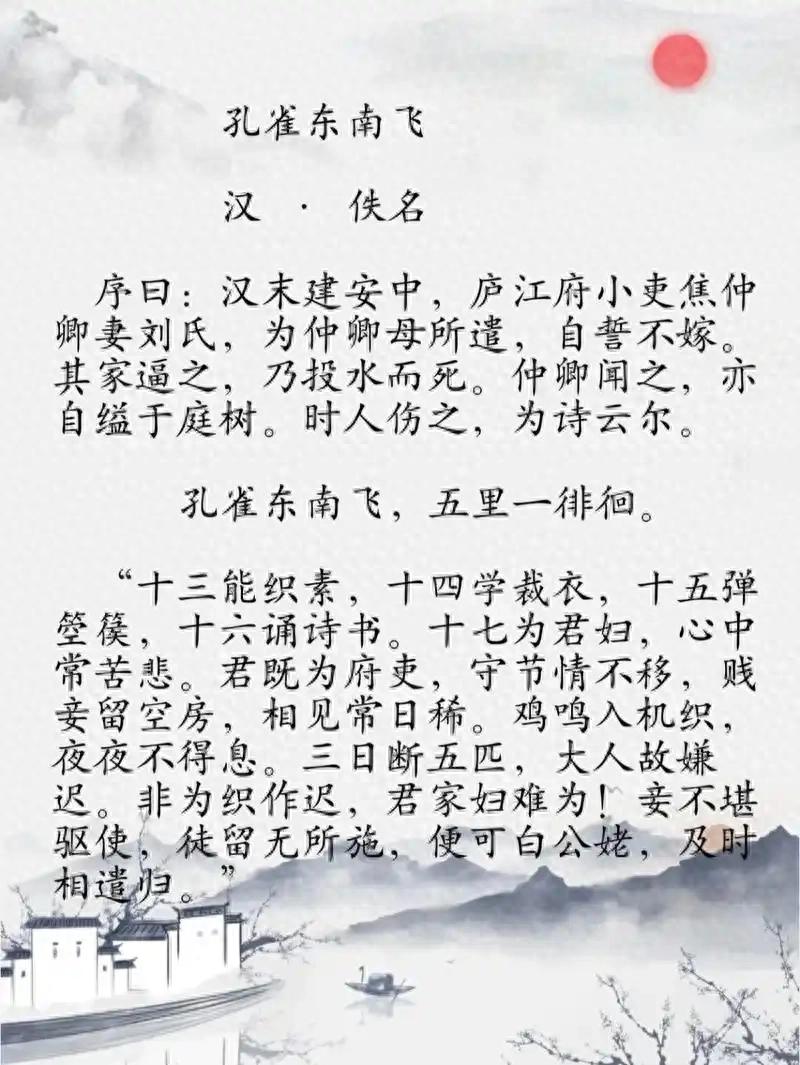 孔雀东南飞
汉 · 佚名
序曰：汉末建安中，庐江府小吏焦仲
卿妻刘氏，为仲卿母所遣，自誓不嫁。
其家逼之，乃投水而死。仲卿闻之，亦
自缢于庭树。时人伤之，为诗云尔。
孔雀东南飞，五里一徘徊。
“十三能织素，十四学裁衣，十五弹
箜篌，十六诵诗书。十七为君妇，心中
常苦悲。君既为府吏，守节情不移，贱
妾留空房，相见常日稀。鸡鸣入机织，
夜夜不得息。三日断五匹，大人故嫌
迟。非为织作迟，君家妇难为！妾不堪
驱使，徒留无所施，便可白公姥，及时
相遣归。”